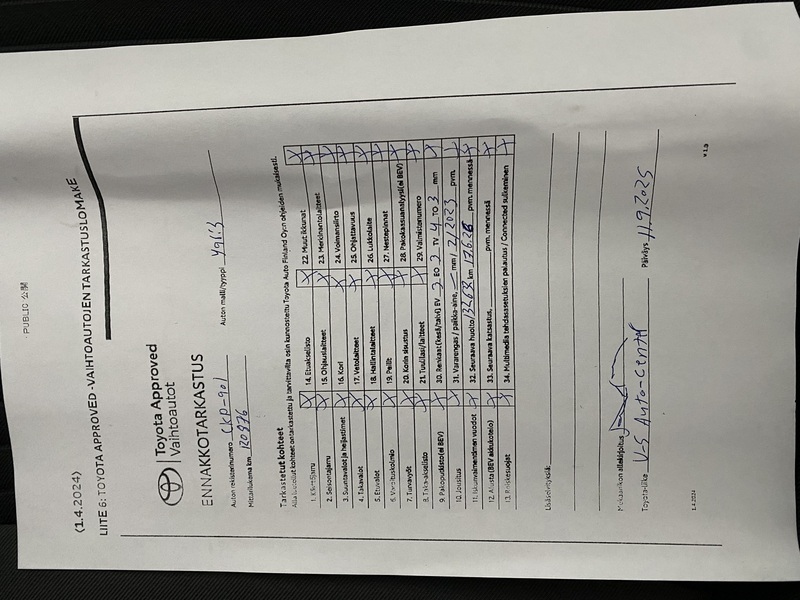 PUBLIC 公開
(1.4.2024)
LIITE 6: TOYOTA APPROVED -VAIHTOAUTOJEN TARKASTUSLOMAKE
Toyota Approved
Vaihtoautot
ENNAKKOTARKASTUS
Auton rekisterinumero CKP-901 Auton malli/tyyppi Yaris
Mittarilukema km 120976
Tarkastetut kohteet
Alla luetellut kohteet on tarkastettu ja tarvittavilta osin kunnostettu Toyota Auto Finland Oy:n ohjeiden mukaisesti.
1. Käsijarru X 14. Etuakselisto X 22. Muut ikkunat X
2. Seisontajarru X 15. Ohjauslaitteet X 23. Merkinantolaitteet X
3. Suuntavalot ja heijastimet X 16. Kori X 24. Voimansiirto X
4. Takavalot X 17. Vetolaitteet X 25. Ohjattavuus X
5. Etuvalot X 18. Hallintalaitteet X 26. Lukkolaite X
6. Varoituskolmio X 19. Peilit X 27. Nestepinnat X
7. Turvavyöt X 20. Korin sisustus X 28. Pakokaasuanalyysi (ei BEV) X
8. Taka-akselisto X 21. Tuulilasi/laitteet X 29. Valmistenumero X
9. Pakoputkisto (ei BEV) X 30. Renkaat (kesä/talvi) EV 3 EO 3 TV 4 TO 3 mm X
10. Jousitus X 31. Vararengas / paikka-aine, — mm / 2/2023 pvm. X
11. Iskunvaimentimen vuodot X 32. Seuraava huolto 132631 km 17.6.26 pvm. mennessä X
12. Alusta (BEV akkukotelo) X 33. Seuraava katsastus, pvm. mennessä X
13. Roiskesuojat X 34. Multimedia tehdasasetuksien palautus / Connected sulkeminen X
Lisäselvityksiä:
Mekaanikon allekirjoitus
Toyota-liike V-S Auto-Center Päiväys 11.9.2025
1.4.2024 v 1.a